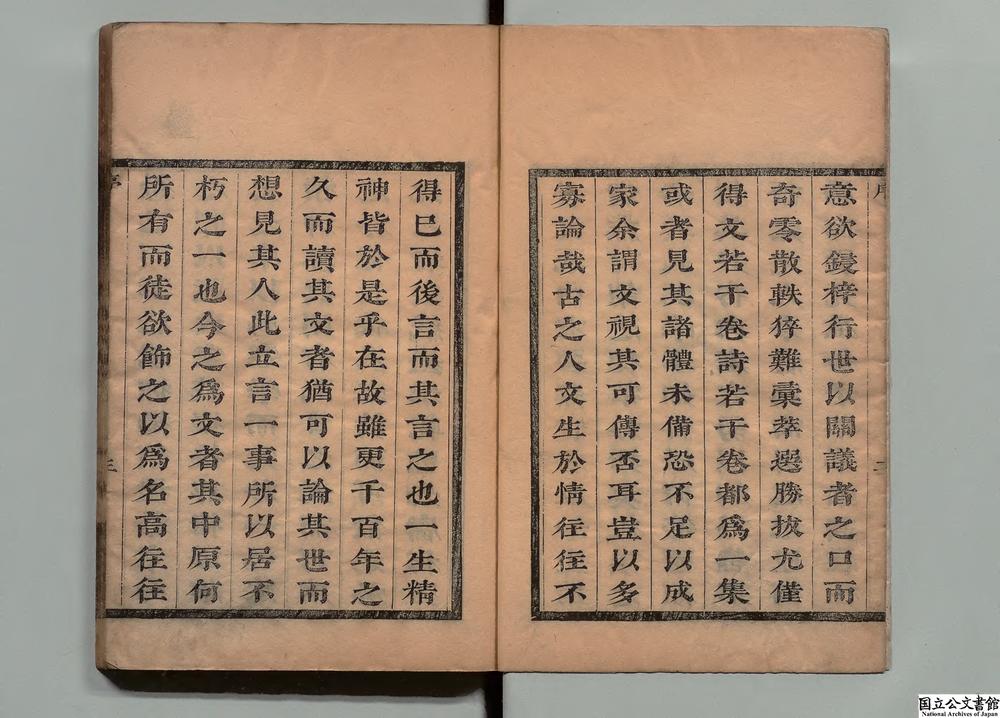 序
二
意欲鋟梓行世以關議者之口而
奇零散軼猝難彙萃選勝拔尤僅
得文若干卷詩若干卷都爲一集
或者見其諸體未備恐不足以成
家余謂文視其可傳否耳豈以多
寡論哉古之人文生於情往往不
得已而後言而其言之也一生精
神皆於是乎在故雖更千百年之
久而讀其文者猶可以論其世而
想見其人此立言一事所以居不
朽之一也今之爲文者其中原何
所有而徒欲飾之以爲名高往往
序
三
国立公文書館
National Archives of Japan